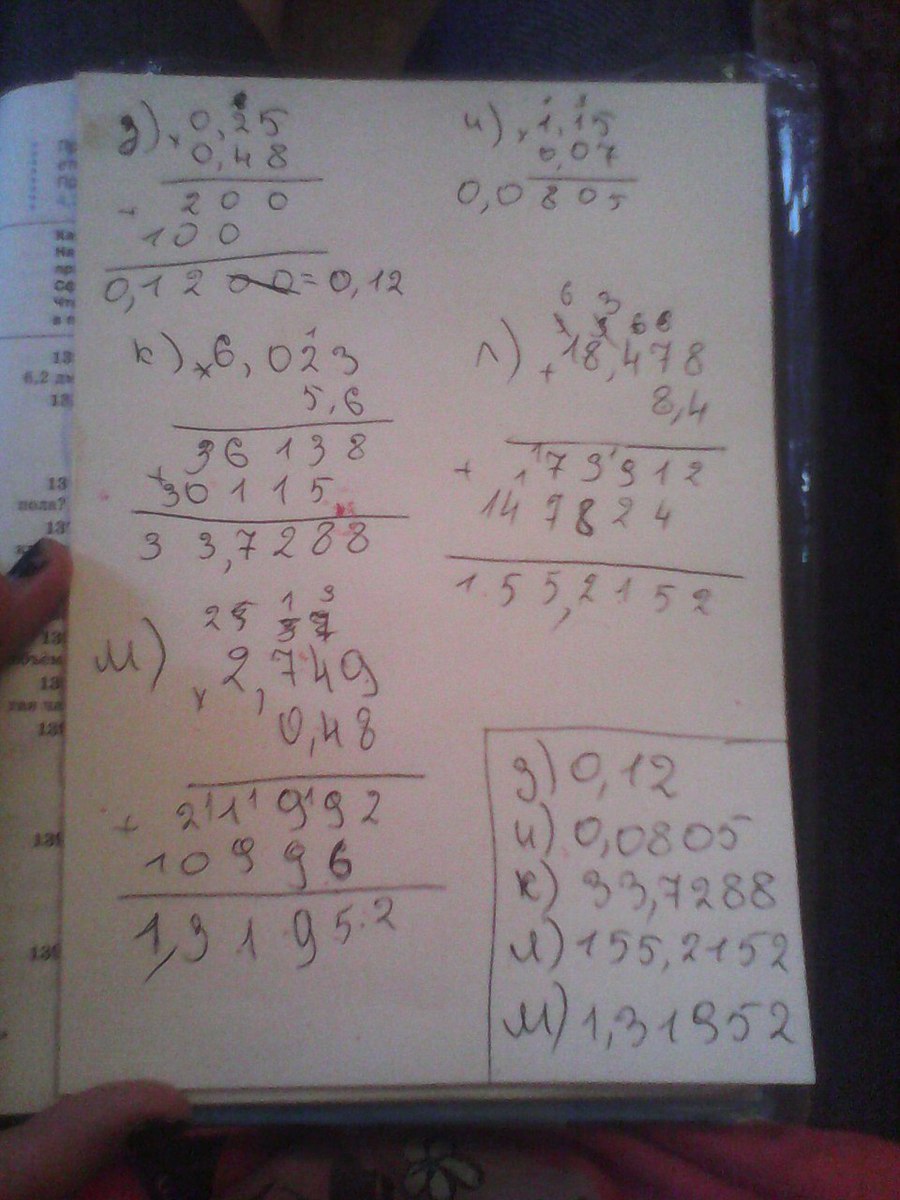 з) × 0,25
0,48
200
100
0,1200 = 0,12
и) × 1,15
0,07
0,0805
к) × 6,023
5,6
36138
+
30115
33,7288
л) 18,478
8,4
+ 173912
147824
155,2152
м) × 2,749
0,48
+ 21992
10996
1,31952
з) 0,12
и) 0,0805
к) 33,7288
л) 155,2152
м) 1,31952